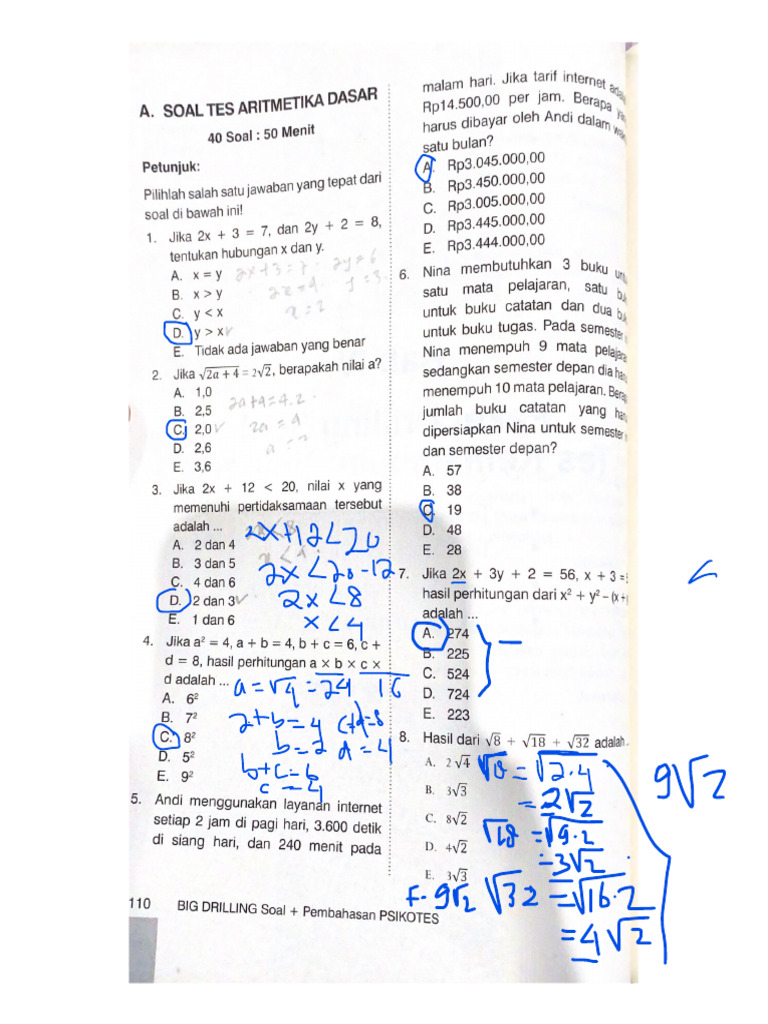 A. SOAL TES ARITMETIKA DASAR
40 Soal : 50 Menit
Petunjuk:
Pilihlah salah satu jawaban yang tepat dari
soal di bawah ini!
1. Jika 2x + 3 = 7, dan 2y + 2 = 8,
tentukan hubungan x dan y.
A. x = y
2x+3=7
2y=6
B. x > y
2x=4
y=3
C. y < x
x=2
D. y > x
E. Tidak ada jawaban yang benar
2. Jika √2a + 4 = 2√2, berapakah nilai a?
A. 1,0
B. 2,5
2a+4=4.2
C. 2,0
2a=4
D. 2,6
E. 3,6
3. Jika 2x + 12 < 20, nilai x yang
memenuhi pertidaksamaan tersebut
adalah ...
A. 2 dan 4
2x+12<20
B. 3 dan 5
2x<20-12
C. 4 dan 6
D. 2 dan 3
2x<8
E. 1 dan 6
x<4
4. Jika a² = 4, a + b = 4, b + c = 6, c +
d = 8, hasil perhitungan a × b × c ×
d adalah ...
a=√4=2
4
16
A. 6²
B. 7²
2+b=4
c+d=8
C. 8²
b=2
d=4
D. 5²
b+c=6
E. 9²
c=4
5. Andi menggunakan layanan internet
setiap 2 jam di pagi hari, 3.600 detik
di siang hari, dan 240 menit pada
malam hari. Jika tarif internet
Rp14.500,00 per jam. Berapa
harus dibayar oleh Andi dalam
satu bulan?
A. Rp3.045.000,00
B. Rp3.450.000,00
C. Rp3.005.000,00
D. Rp3.445.000,00
E. Rp3.444.000,00
6. Nina membutuhkan 3 buku
satu mata pelajaran, satu
untuk buku catatan dan dua
untuk buku tugas. Pada semester
Nina menempuh 9 mata
sedangkan semester depan dia
menempuh 10 mata pelajaran.
jumlah buku catatan yang
dipersiapkan Nina untuk semester
dan semester depan?
A. 57
B. 38
C. 19
D. 48
E. 28
7. Jika 2x + 3y + 2 = 56, x + 3 =
hasil perhitungan dari x² + y² – (x +
adalah ...
A. 274
B. 225
C. 524
D. 724
E. 223
8. Hasil dari √8 + √18 + √32 adalah
A. 2√4
√8=√2.4
B. 3√3
=2√2
9√2
C. 8√2
√18=√9.2
D. 4√2
=3√2
E. 3√3
F. 9√2
√32=√16.2
=4√2
110 BIG DRILLING Soal + Pembahasan PSIKOTES